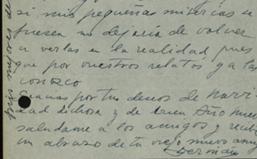 si mis pequeñas miserias se
fuesen no dejaria de volver
a verlas en la realidad pues
que por vuestros relatos ya las
conozco
Gracias por tus deseos de Navi
dad dichosa y de buen Año Nuevo
saludame a los amigos y recibe
un abrazo de tu viejo amigo
Germán